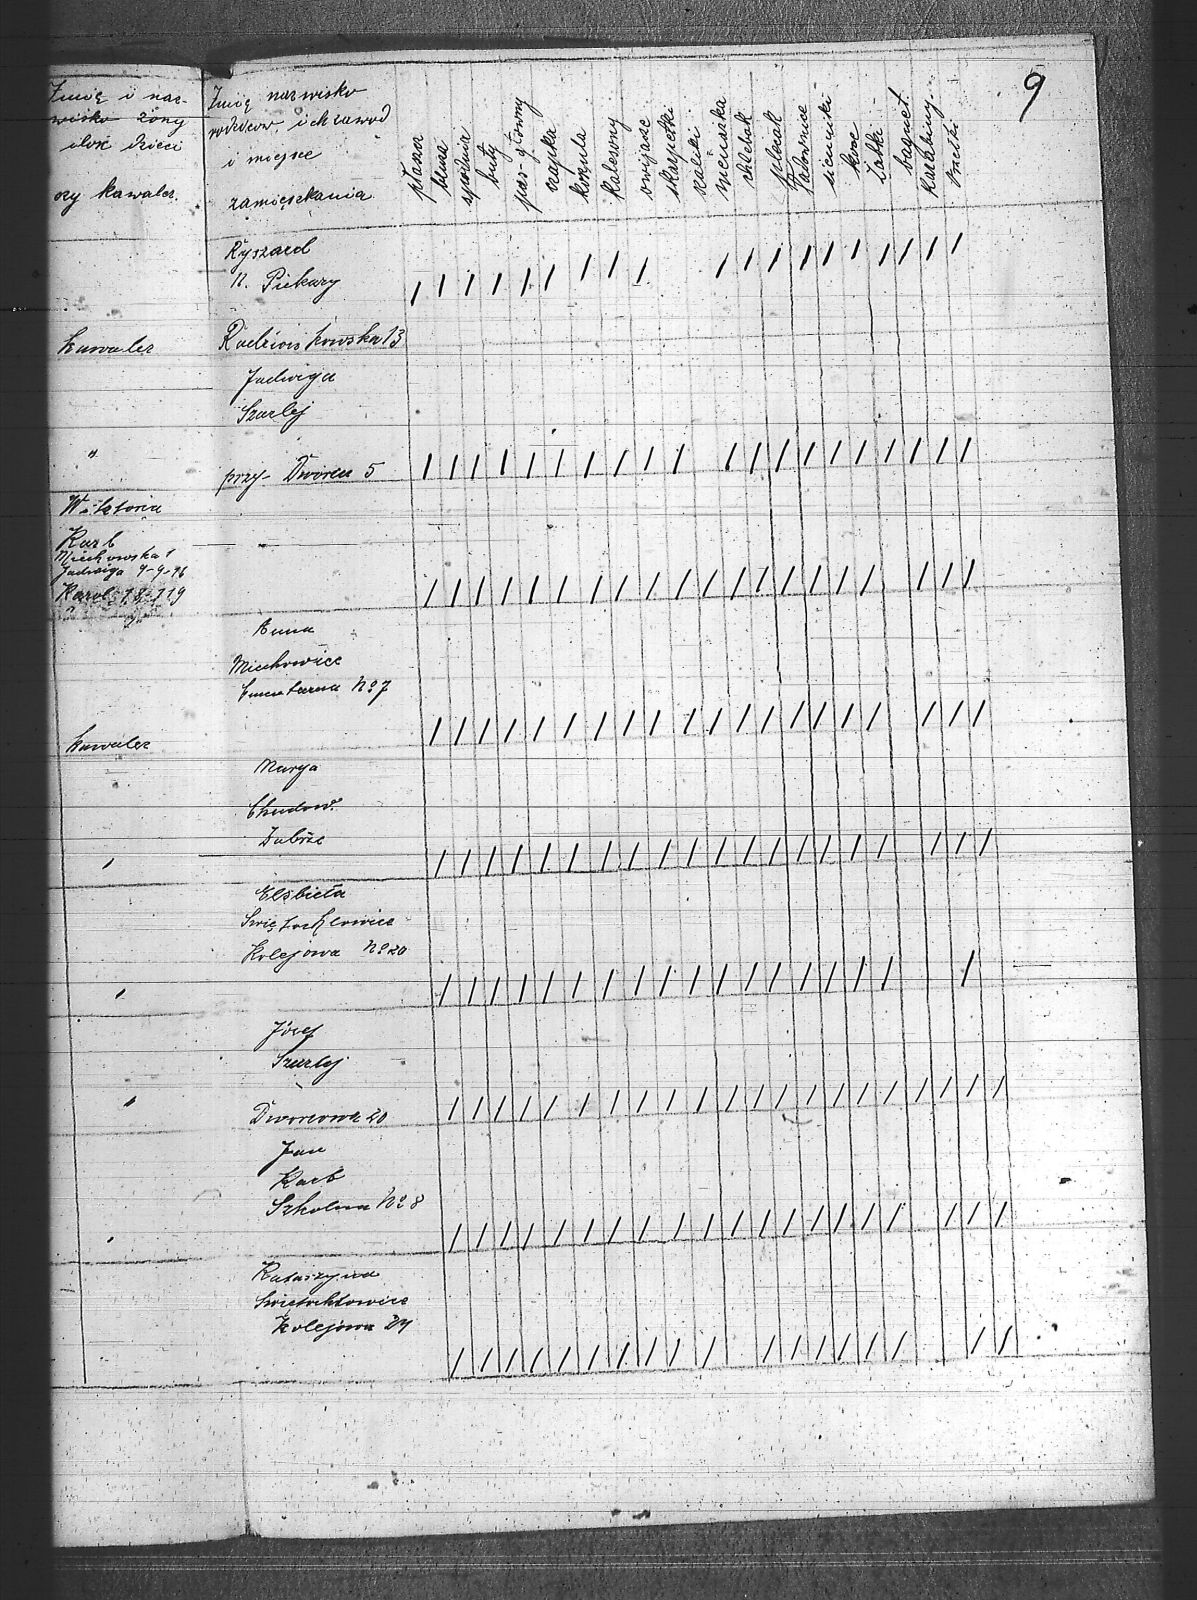 9
Imię i naz-
wisko żony
ilość dzieci
czy kawaler.
Imię nazwisko
rodziców, ich zawod
i miejsce
zamieszkania
płaszcz
bluza
spodnie
buty
pas-główny
czapka
koszula
kalesony
owijacze
skarpetki
szaliki
menaszka
chlebak
plecak
Ładownice
sienniki
koce
Łatki
bagnet
Karabiny.
Ryszard
N. Piekary
/ / / / / / / / / / / / / / / / / / /
kawaler
Radzionkowska 13
Jadwiga
Szarlej
"
przy- Dworcu 5
/ / / / / / / / / / / / / / / / / / / /
Wiktoria
Karb
Miechowska 1
Jadwiga 4-9-16
Karol
"
/ / / / / / / / / / / / / / / / / / / /
Anna
Miechowice
Cmentarna No 7
/ / / / / / / / / / / / / / / / / / / /
kawaler
Marya
Chudow.
Zabrze
/ / / / / / / / / / / / / / / / / / / /
"
Elsbieta
Świętochłowice
Kolejowa No 20
/ / / / / / / / / / / / / / / / / /
"
Józef
Szarlej
"
Dworcowa 20
/ / / / / / / / / / / / / / / / / / / / /
Jan
Karb
Szkolna No 8
/ / / / / / / / / / / / / / / / / / / /
"
Katarzyna
Świętochłowice
Kolejowa 24
/ / / / / / / / / / / / / / / / / /